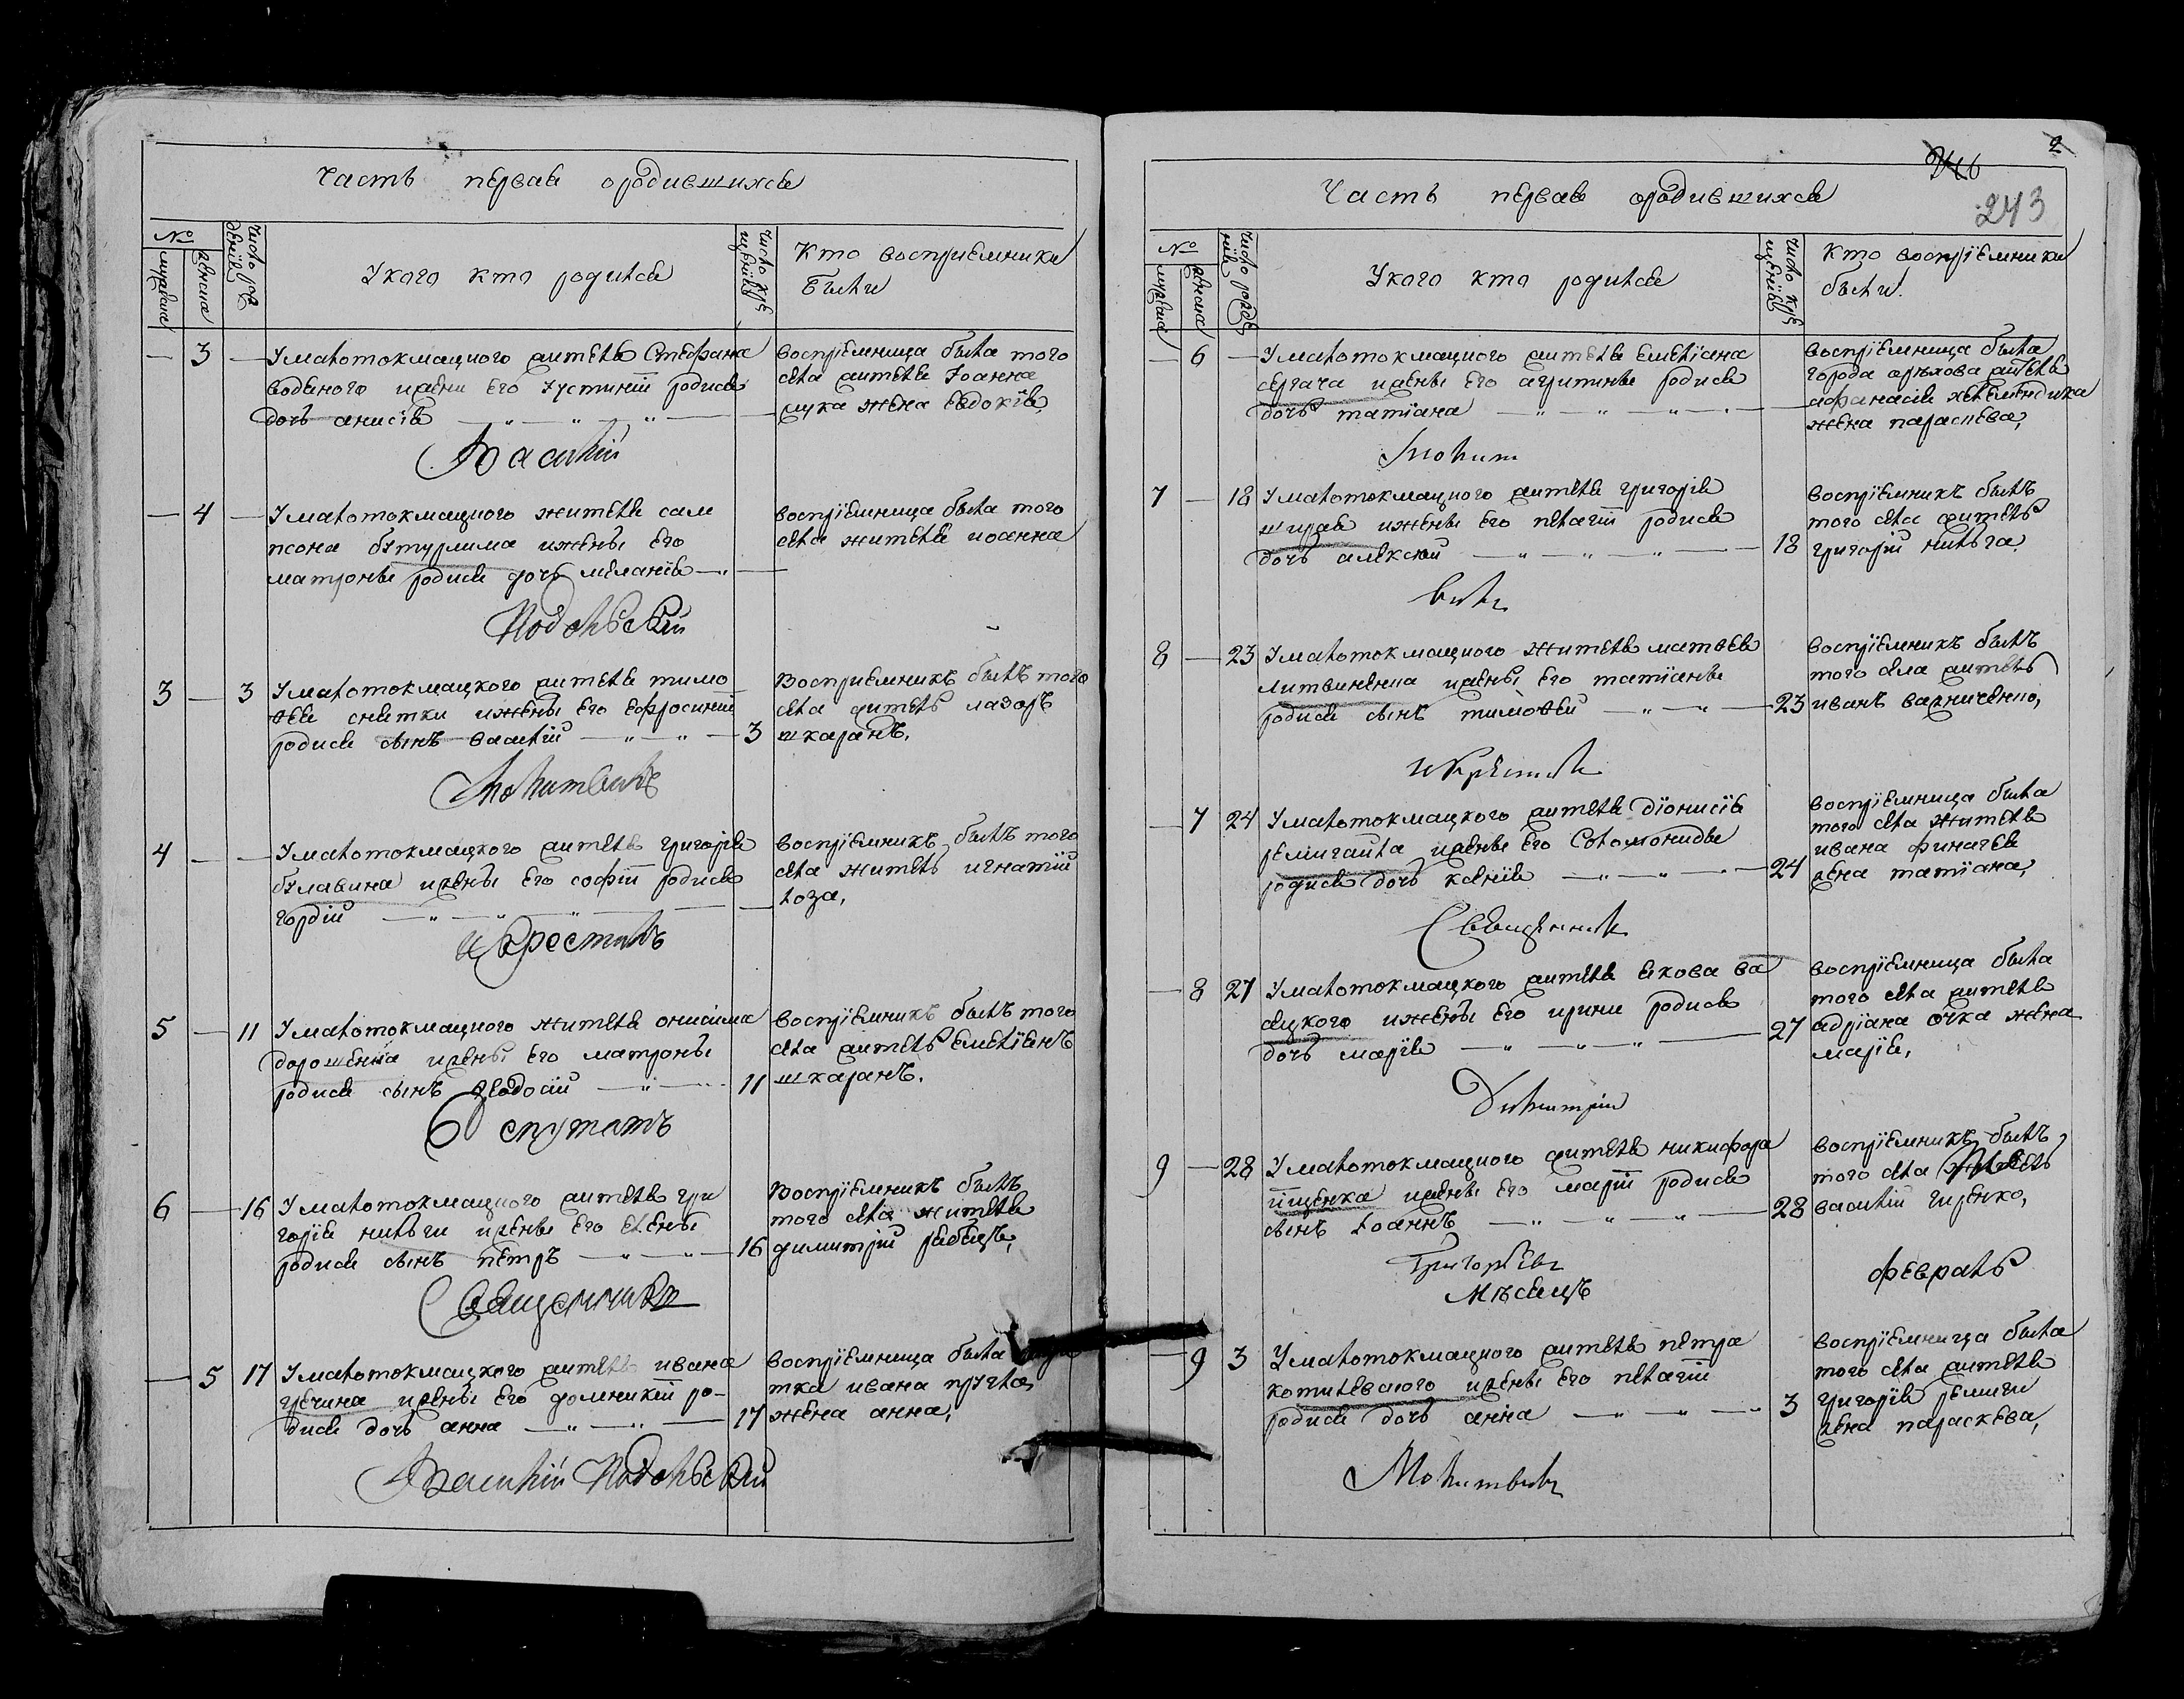 Часть первая ородившихся
№
мужеска
женска
число рож
дения
Укого кто родился
число кре
щения
Кто восприемники
были
3
Умалотокмацкого жителя Стефана
водяного ижени его Устинии родися
дочь анисія
восприемница была того
села жителя Іоанна
щука жена евдокія,
Василій
4
Умалотокмацкого жителя сам
псона бутурлима ижены его
матроны родися дочь меланія
восприемница была того
села жителя иоанна
Подольский
3 3
Умалотокмацкого жителя тимо
ѳея снетки ижены его ефросинии
родися сынъ василій
3
Восприемникъ былъ того
села житель лазоръ
шкаранъ,
Молитвилъ
4
Умалотокмацкого жителя григорія
булавина ижены его софіи родися
гордій
восприемникъ былъ того
села житель игнатій
лоза,
и крестилъ
5 11
Умалотокмацкого жителя онисима
дорошенка ижены его матроны
родися сынъ ѳеодосий
11
восприемникъ былъ того
села житель емеліянъ
шкаранъ.
Депутатъ
6 16
Умалотокмацкого жителя гри
горія ниньги ижены его елены
родися сынъ петръ
16
Восприемникъ былъ
того села жителя
димитрій рябецъ,
Священникъ
5 17
Умалотокмацкого жителя ивана
гречина ижены его домникіи ро-
дися дочь анна
17
восприемница была
тка ивана пругла
жена анна,
Василий Подольский
2
243
Часть первая ородившихся
№
мужеска
женска
число рожде
ния
Укого кто родился
число кре
щения
Кто воспріемники
были.
6
Умалотокмацкого жителя емеліана
сергача ижены его агрипины родися
дочь татіана
воспріемница была
города орѣхова жителя
афанасія
жена параскева,
Молит
7 18
Умалотокмацкого жителя григорія
ширая ижены его пелагіи родися
дочь
18
воспріемникъ былъ
того села житель
григорій ниньга.
вилъ
8 23
Умалотокмацкого жителя матѳея
литвиненка ижены его татіаны
родися сынъ тимоѳей
23
воспріемникъ былъ
того села житель
иванъ варниченко,
и крестилъ
7 24
Умалотокмацкого жителя діонисія
ремигайла ижены его Соломониды
родися дочь ксенія
24
воспріемница была
того села жителя
ивана финагея
жена татіана,
Священникъ
8 27
Умалотокмацкого жителя якова ва
сецкого ижены его ирини родися
дочь марія
27
воспріемница была
того села жителя
адріана очка жена
марія,
Димитрий
9 28
Умалотокмацкого жителя никифора
ищенка ижены его маріи родися
сынъ Іоаннъ
28
воспріемникъ былъ
того села житель
василій гиренко,
Григорьевъ
Мѣсяцъ
февраль
9 3
Умалотокмацкого жителя петра
котилевского ижены его пелагіи
родися дочь анна
3
воспріемница была
того села жителя
григорія ремиги
жена параскева,
Молитвилъ